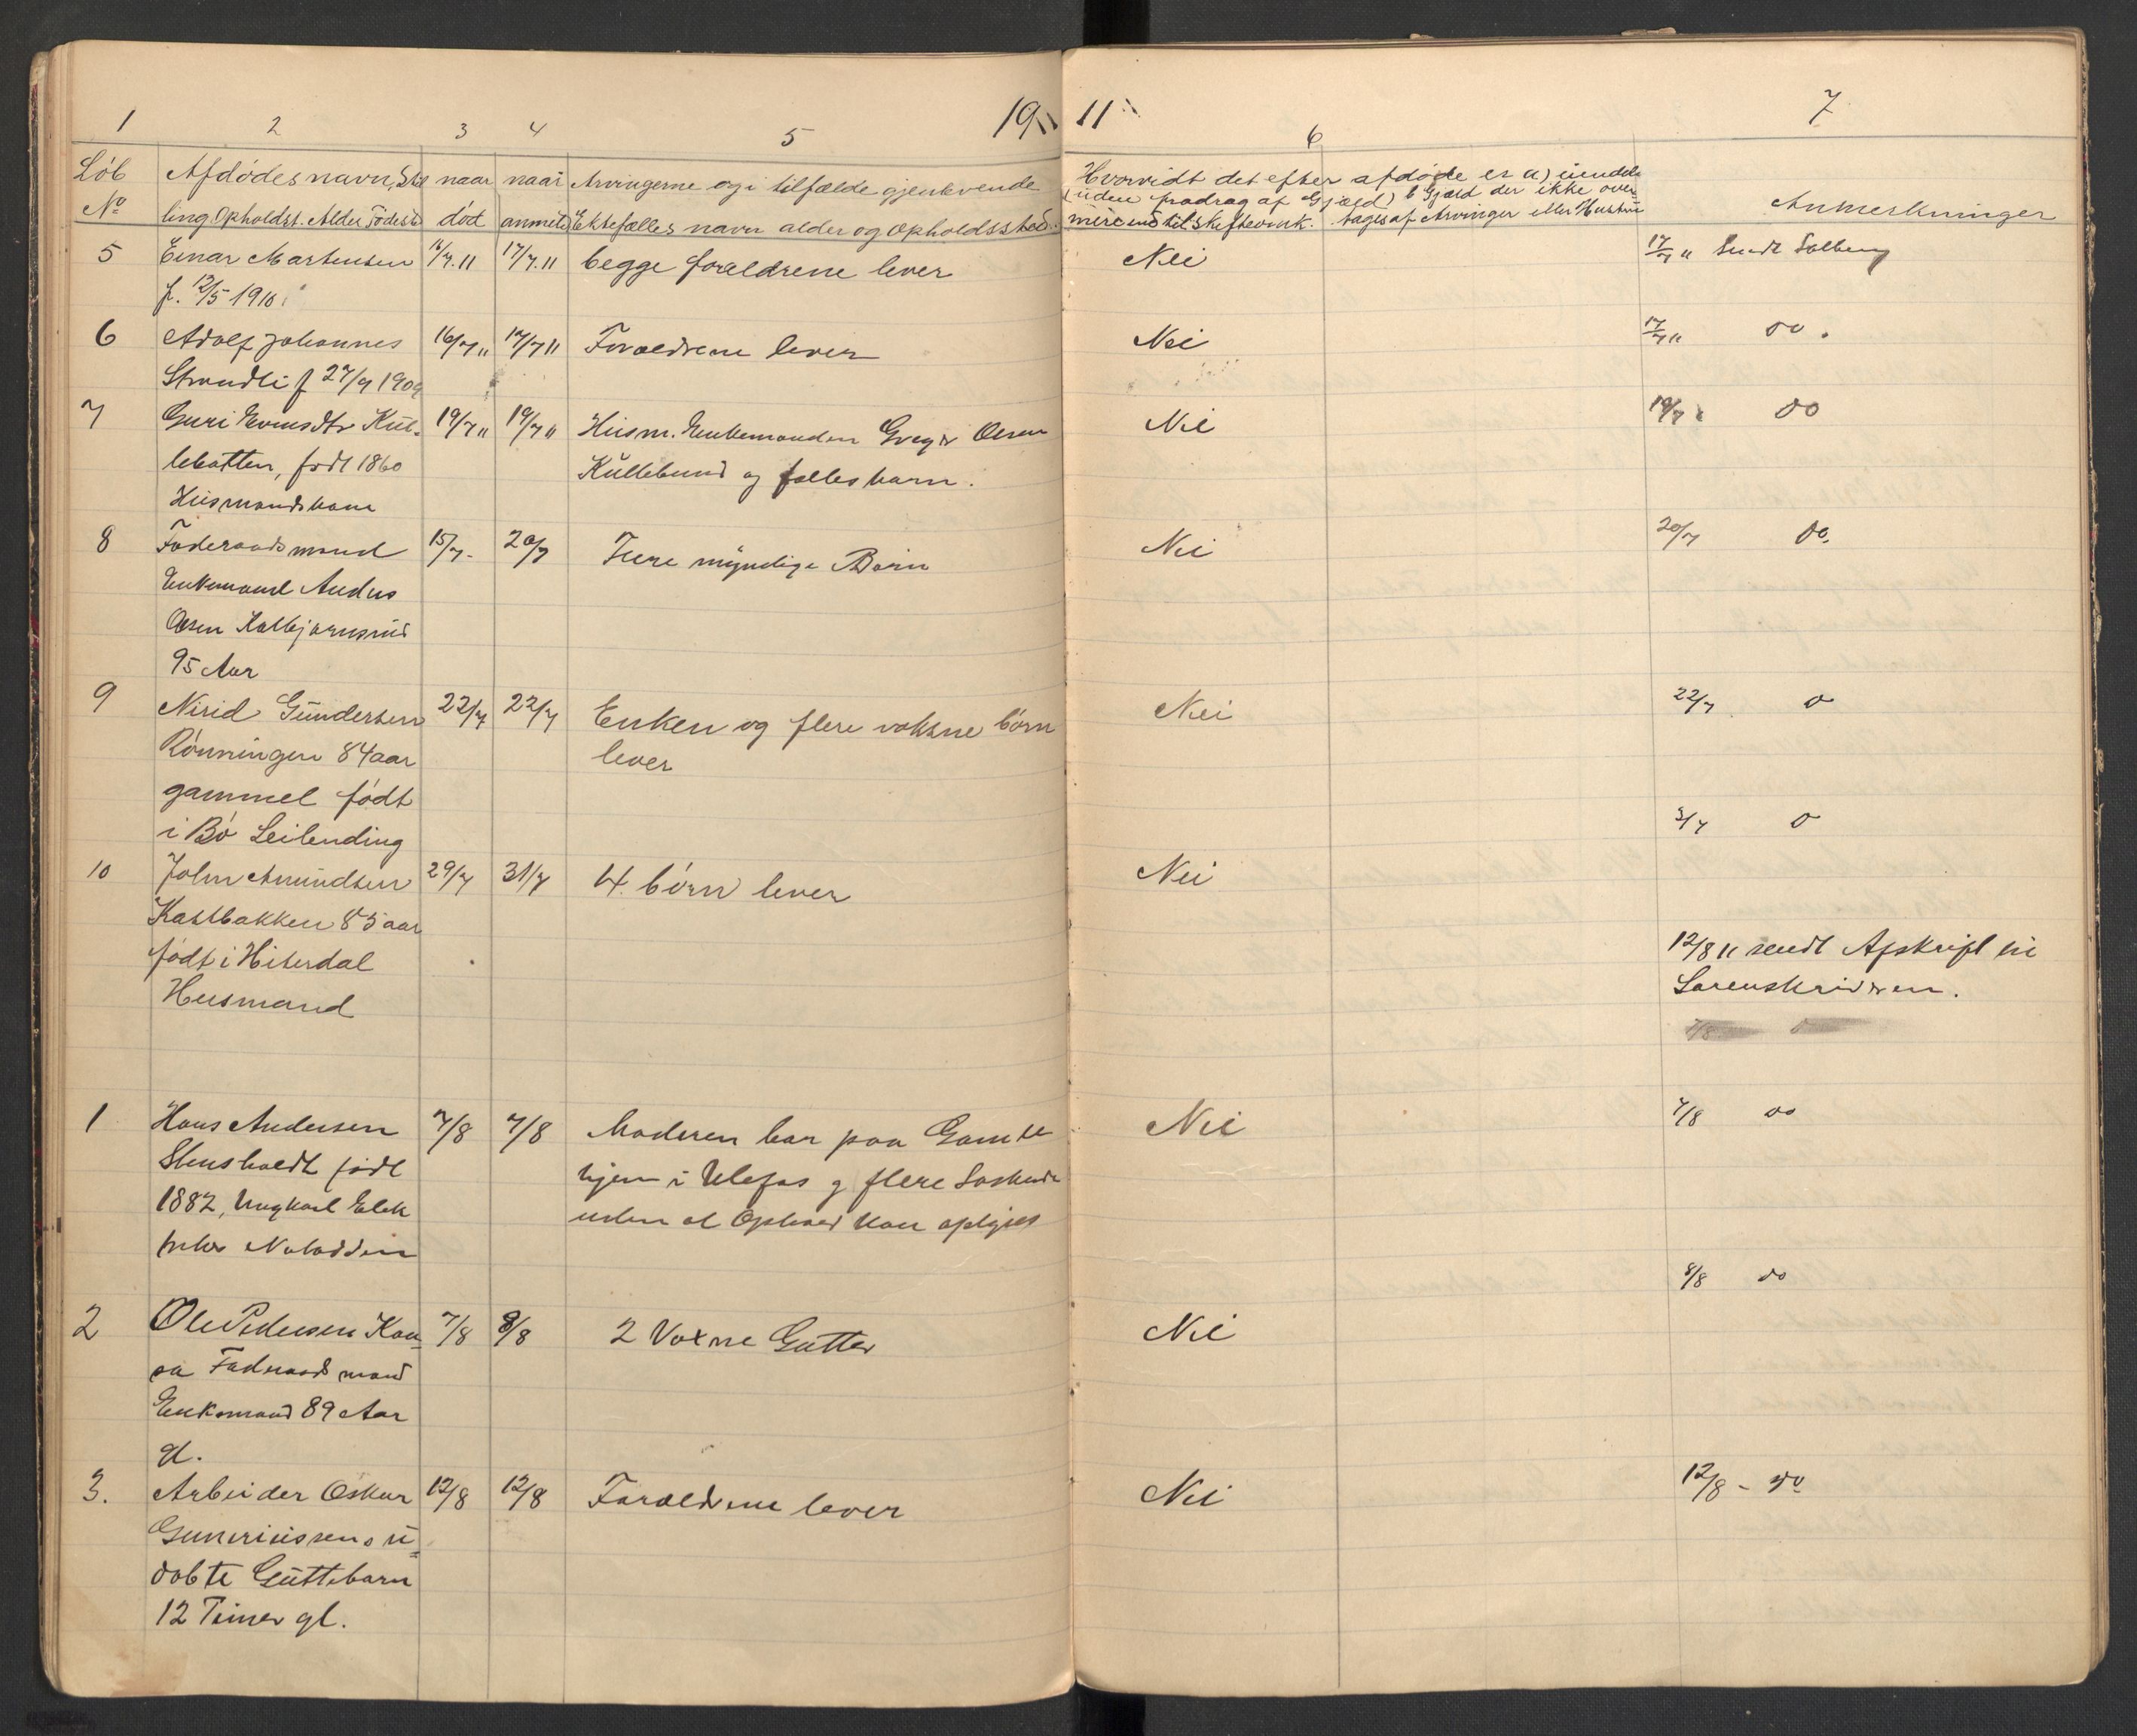 1 2 3 4 5 1911 6 7
Löb Afdödes navn, Stil naar naar Arvingerne og i tilfælde gjenlevende Hvorvidt det efter afdøde er a) uendel
(uden fradrag af Gjæld) b Gjæld der ikke over
No ling. Opholdst. Alder Födest. död anmeldt Ektefælles navn alder og Opholdssted. mere end til tages af Arvinger eller Hustru Anmerkninger
5 Einar Martensen 16/7.11 17/7.11 begge forældrene lever Nei 17/7 11 Sendt Solberg
f. 12/5 1910.
6 Adolf Johannes 16/7 11 17/7 11 Forældrene lever Nei 17/7 11 do.
Strandli f 27/9 1909
7 Guri Evensdtr Kul- 19/7 11 19/7 11 Husm. Enkemanden Greger Olsen Nei 19/7 do
lebotten, født 1860 Kullebund og fælles barn.
Husmandskone
8 Føderaadsmand 15/7- 20/7 Flere myndige Børn Nei 20/7 do.
Enkemand Andres
Olsen Kolbjørnsrud
95 Aar
9 Nirid Gundersen 22/7 22/7 Enken og flere voksne børn Nei 22/7 o
Rönningen 84 aar lever
gammel födt
i Bö Leilending 31/7 o
10 John Amundsen 29/7 31/7 4. börn lever Nei
Kastbakken 85 aar
födt i Hiterdal 12/8 11 sendt Afskrift til
Husmand Sorenskriveren.
7/8 o
1 Hans Andersen 7/8 7/8 Moderen bor paa Gamle Nei 7/8 do
Stensholdt født hjem i Ulefos og flere Søskende
1882, Ungkarl Elek uden at Ophold kan opgives
Notodden
8/8 do
2 Ole Pedersen Kaa- 7/8 8/8 2 Voxne Gutter Nei
sa Føderaadsmand
Enkemand 89 Aar
gl.
3. Arbeider Oskar 12/8 12/8 Forældrene lever Nei 12/8 - do
Guneriussens u-
døbte Guttebarn
12 Timer gl.